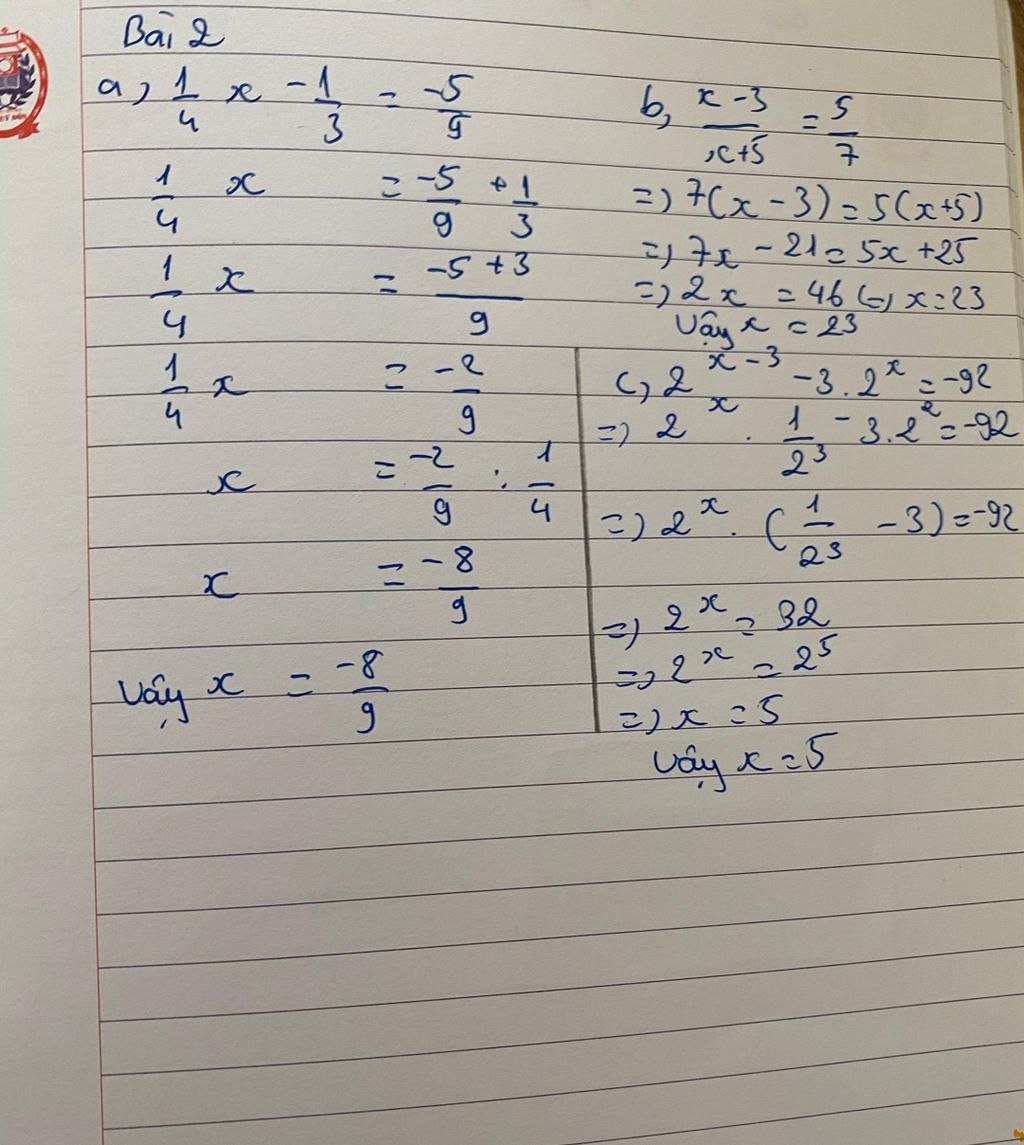 Bài 2
a, 1/4 x - 1/3 = -5/9
1/4 x = -5/9 + 1/3
1/4 x = (-5 + 3)/9
1/4 x = -2/9
x = -2/9 : 1/4
x = -8/9
Vậy x = -8/9
b, (x - 3)/(x + 5) = 5/7
=> 7(x - 3) = 5(x + 5)
=> 7x - 21 = 5x + 25
=> 2x = 46 (=> x = 23
Vậy x = 23
c, 2^(x - 3) - 3 . 2^x = -92
=> 2^x . 1/2^3 - 3 . 2^2 = -92
=> 2^x . (1/2^3 - 3) = -92
=> 2^x = 32
=> 2^x = 2^5
=> x = 5
Vậy x = 5